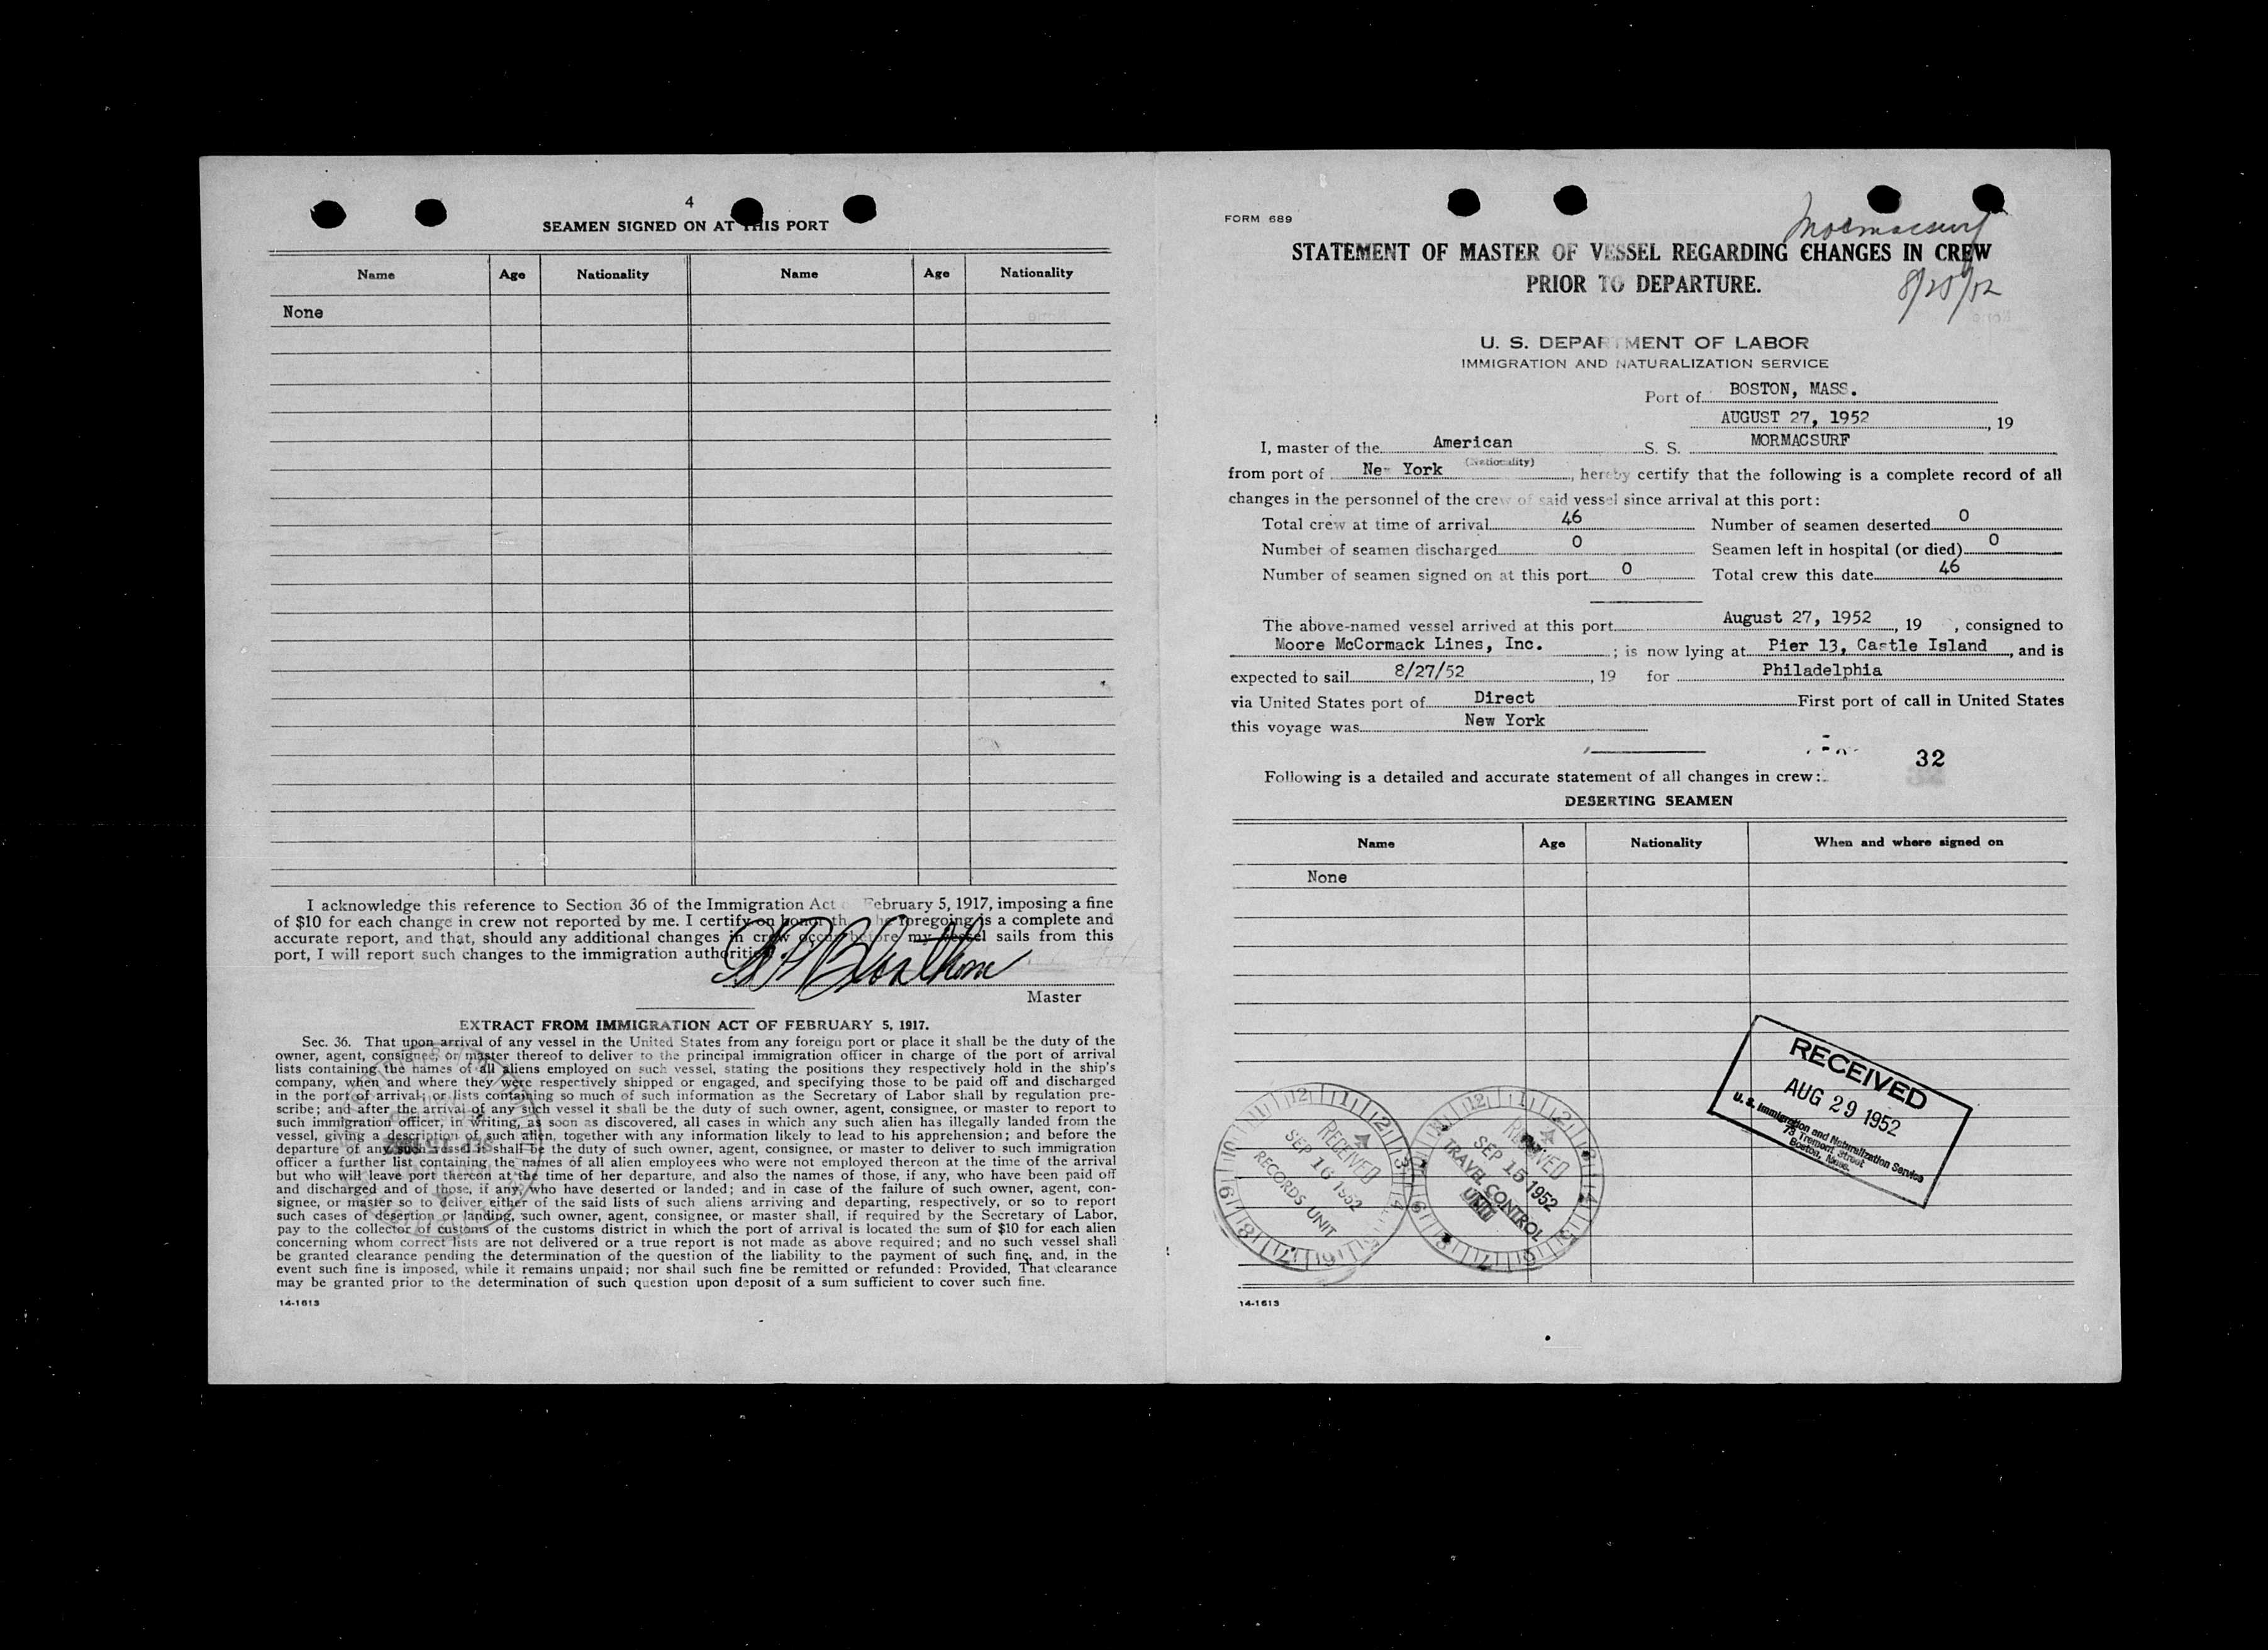 4
SEAMEN SIGNED ON AT THIS PORT
Name Age Nationality Name Age Nationality
None
I acknowledge this reference to Section 36 of the Immigration Act February 5, 1917, imposing a fine
of $10 for each change in crew not reported by me. I certify on honor th foregoing is a complete and
accurate report, and that, should any additional changes in crew occur before my vessel sails from this
port, I will report such changes to the immigration authorities
Master
EXTRACT FROM IMMIGRATION ACT OF FEBRUARY 5, 1917.
Sec. 36. That upon arrival of any vessel in the United States from any foreign port or place it shall be the duty of the
owner, agent, consignee, or master thereof to deliver to the principal immigration officer in charge of the port of arrival
lists containing the names of all aliens employed on such vessel, stating the positions they respectively hold in the ship's
company, when and where they were respectively shipped or engaged, and specifying those to be paid off and discharged
in the port of arrival; or lists containing so much of such information as the Secretary of Labor shall by regulation pre-
scribe; and after the arrival of any such vessel it shall be the duty of such owner, agent, consignee, or master to report to
such immigration officer, in writing, as soon as discovered, all cases in which any such alien has illegally landed from the
vessel, giving a description of such alien, together with any information likely to lead to his apprehension; and before the
departure of any such vessel it shall be the duty of such owner, agent, consignee, or master to deliver to such immigration
officer a further list containing the names of all alien employees who were not employed thereon at the time of the arrival
but who will leave port thereon at the time of her departure, and also the names of those, if any, who have been paid off
and discharged and of those, if any, who have deserted or landed; and in case of the failure of such owner, agent, con-
signee, or master so to deliver either of the said lists of such aliens arriving and departing, respectively, or so to report
such cases of desertion or landing, such owner, agent, consignee, or master shall, if required by the Secretary of Labor,
pay to the collector of customs of the customs district in which the port of arrival is located the sum of $10 for each alien
concerning whom correct lists are not delivered or a true report is not made as above required; and no such vessel shall
be granted clearance pending the determination of the question of the liability to the payment of such fine, and, in the
event such fine is imposed, while it remains unpaid; nor shall such fine be remitted or refunded: Provided, That clearance
may be granted prior to the determination of such question upon deposit of a sum sufficient to cover such fine.
14-1613
FORM 689
Mormacsurf
STATEMENT OF MASTER OF VESSEL REGARDING CHANGES IN CREW
PRIOR TO DEPARTURE.
U. S. DEPARTMENT OF LABOR
IMMIGRATION AND NATURALIZATION SERVICE
Port of BOSTON, MASS.
AUGUST 27, 1952, 19
I, master of the American S. S. MORMACSURF
(Nationality)
from port of New York, hereby certify that the following is a complete record of all
changes in the personnel of the crew of said vessel since arrival at this port:
Total crew at time of arrival 46 Number of seamen deserted 0
Number of seamen discharged 0 Seamen left in hospital (or died) 0
Number of seamen signed on at this port 0 Total crew this date 46
The above-named vessel arrived at this port August 27, 1952, 19 , consigned to
Moore McCormack Lines, Inc. ; is now lying at Pier 13, Castle Island, and is
expected to sail 8/27/52, 19 for Philadelphia
via United States port of Direct First port of call in United States
this voyage was New York
32
Following is a detailed and accurate statement of all changes in crew:
DESERTING SEAMEN
Name Age Nationality When and where signed on
None
RECEIVED
AUG 29 1952
U. S. Immigration and Naturalization Service
73 Tremont Street
Boston, Mass.
RECEIVED
SEP 16 1952
RECORDS UNIT
RECEIVED
SEP 15 1952
TRAVEL CONTROL
UNIT
14-1613